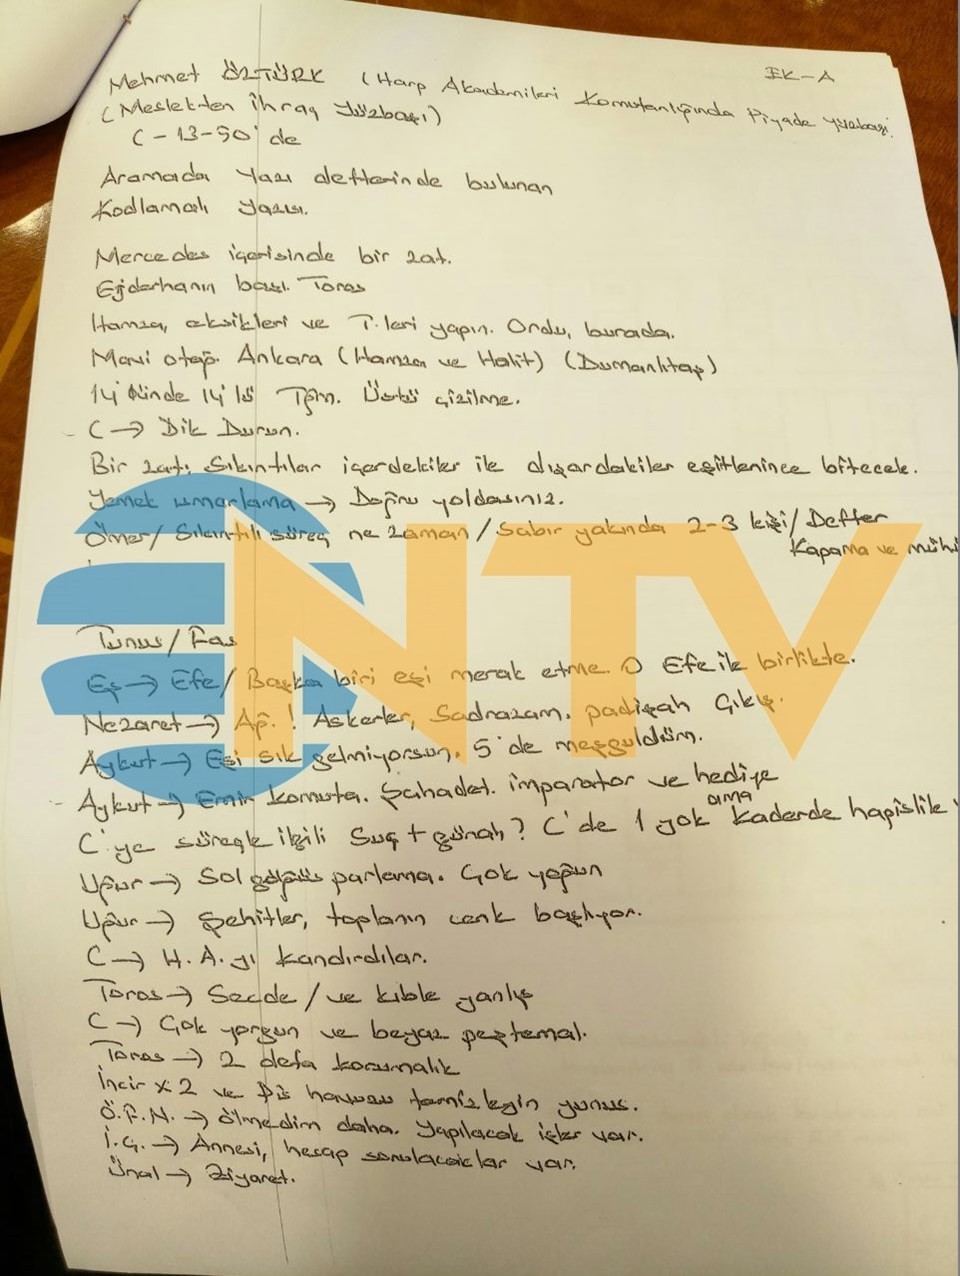 EK-A
Mehmet ÖZTÜRK (Harp Akademileri Komutanlığında Piyade yüzbaşı.
(Meslekten İhraç Yüzbaşı)
C-13-50'de
Aramada Yazı defterinde bulunan
Kodlamalı yazısı.
Mercedes içerisinde bir zat.
Ejderhanın başı. Toros
Hamza, eksikleri ve T.leri yapın. Ordu, burada.
Mavi otağ. Ankara (Hamza ve Halit) (Dumanlıtağ)
14'ünde 14'lü Tğm. Üstü çizilme.
C → Dik Durun.
Bir zatı, Sıkıntılar içerdekiler ile dışardakiler eşitlenince bitecek.
Yemek ısmarlama → Doğru yoldasınız.
Ömer/ Sıkıntılı süreç ne zaman/Sabır yakında 2-3 kişi/ Defter
Kapama ve
Tunus/Fas
Eş → Efe/ Başka biri eşi merak etme. O Efe ile birlikte.
Nezaret → Ağ. ! Askerler, Sadrazam, padişah Çıkış.
Aykut → Eşi sık gelmiyorsun. 5'de meşguldüm.
Aykut → Emir komuta. Şahadet. imparator ve hediye
C'ye süreçle ilgili Suç + günah? C'de 1 yok ama kaderde hapislik
Uğur → Sol göğüs parlama. Çok yoğun
Uğur → Şehitler, toplanın cenk başlıyor.
C → H.A.yı kandırdılar.
Toros → Secde / ve kıble yanlış
C → Çok yorgun ve beyaz peştemal.
Toros → 2 defa korumalık
İncir x2 ve pis havuzu temizleyin yunus.
Ö.F.N. → ölmedim daha. Yapılacak işler var.
İ.G. → Annesi, hesap sorulacaklar var.
Ünal → Ziyaret.
NTV